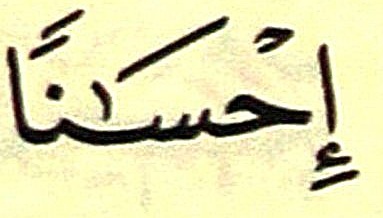 إِحْسَـٰنًا